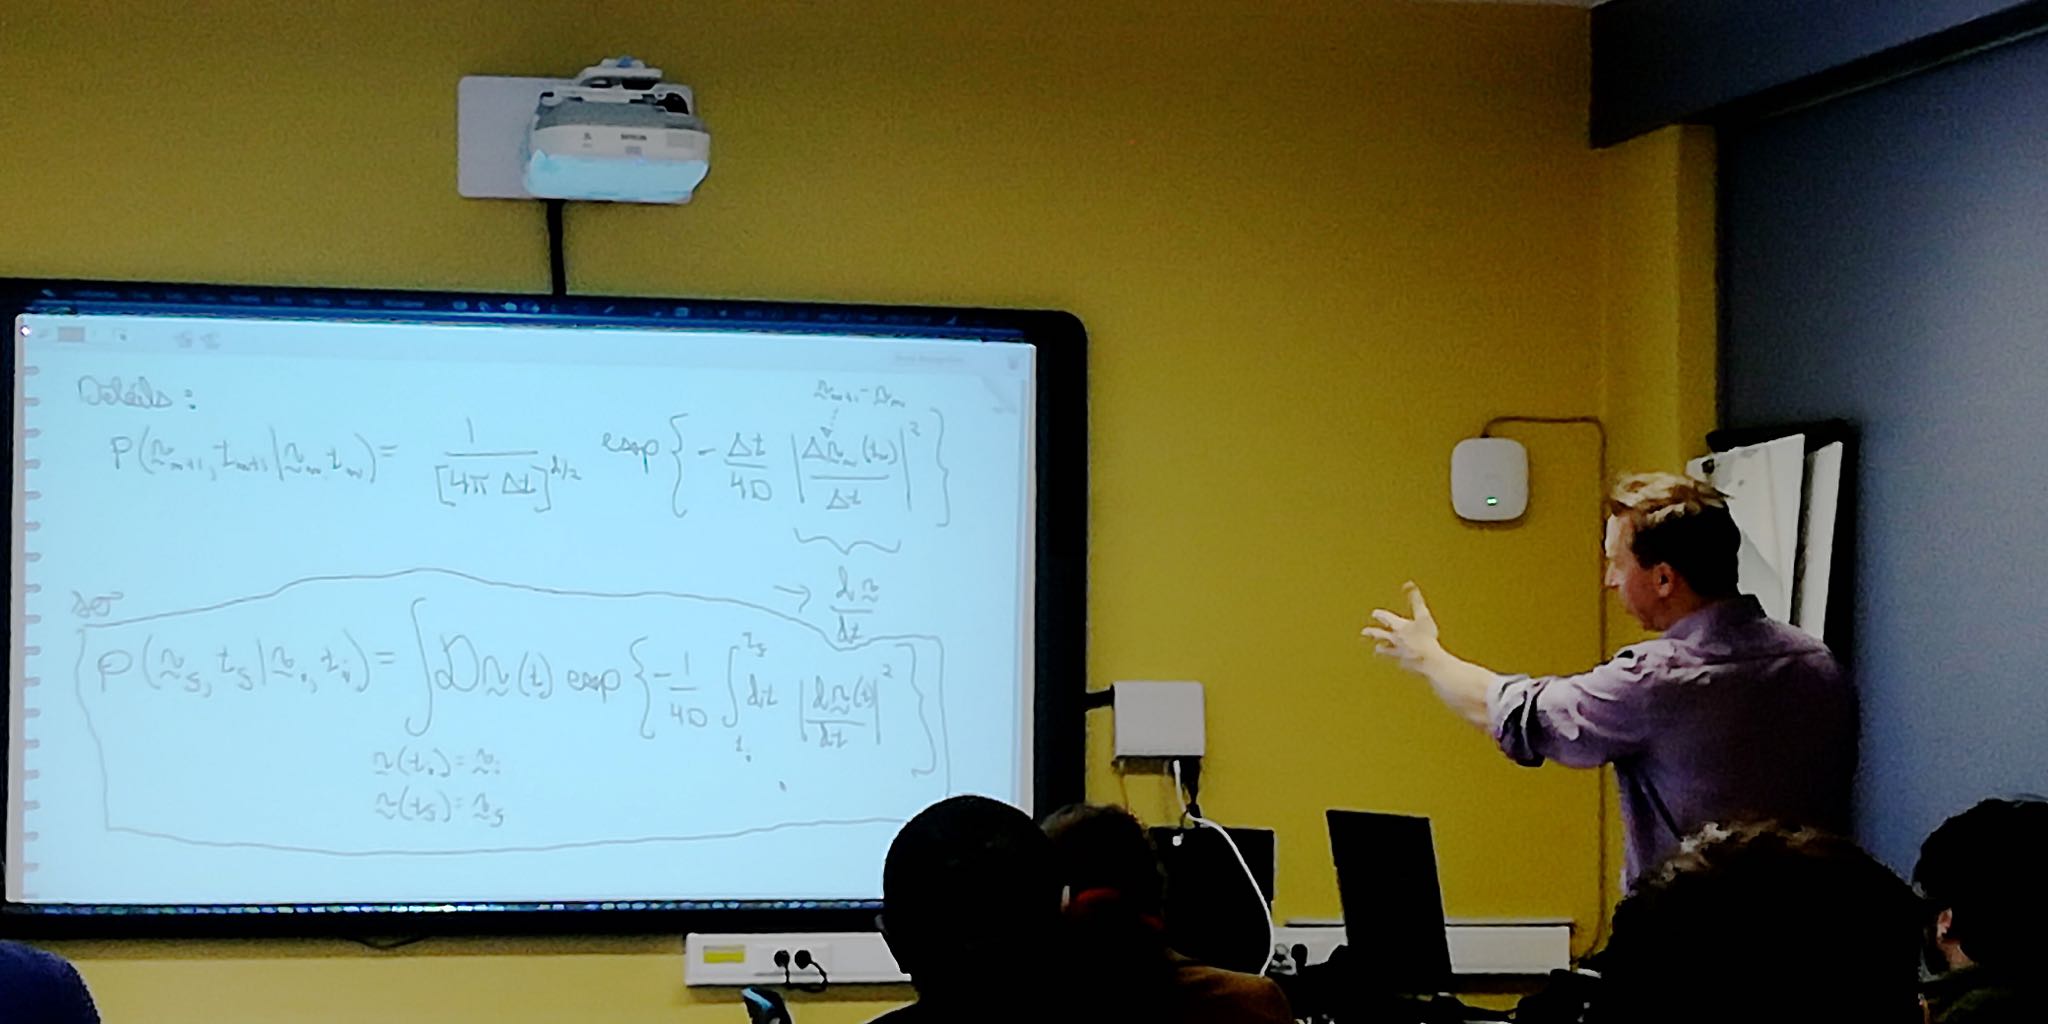 Details:
r_{m+1} - r_m
P(r_{m+1}, t_{m+1} | r_m, t_m) = 1 / [4π Δt]^{d/2} exp { - Δt/4D | Δr_m(t_m) / Δt |² }
→ dr/dt
so
P(r_f, t_f | r_i, t_i) = ∫ Dr(t) exp { -1/4D ∫_{t_i}^{t_f} dt | dr(t)/dt |² }
r(t_i) = r_i
r(t_f) = r_f